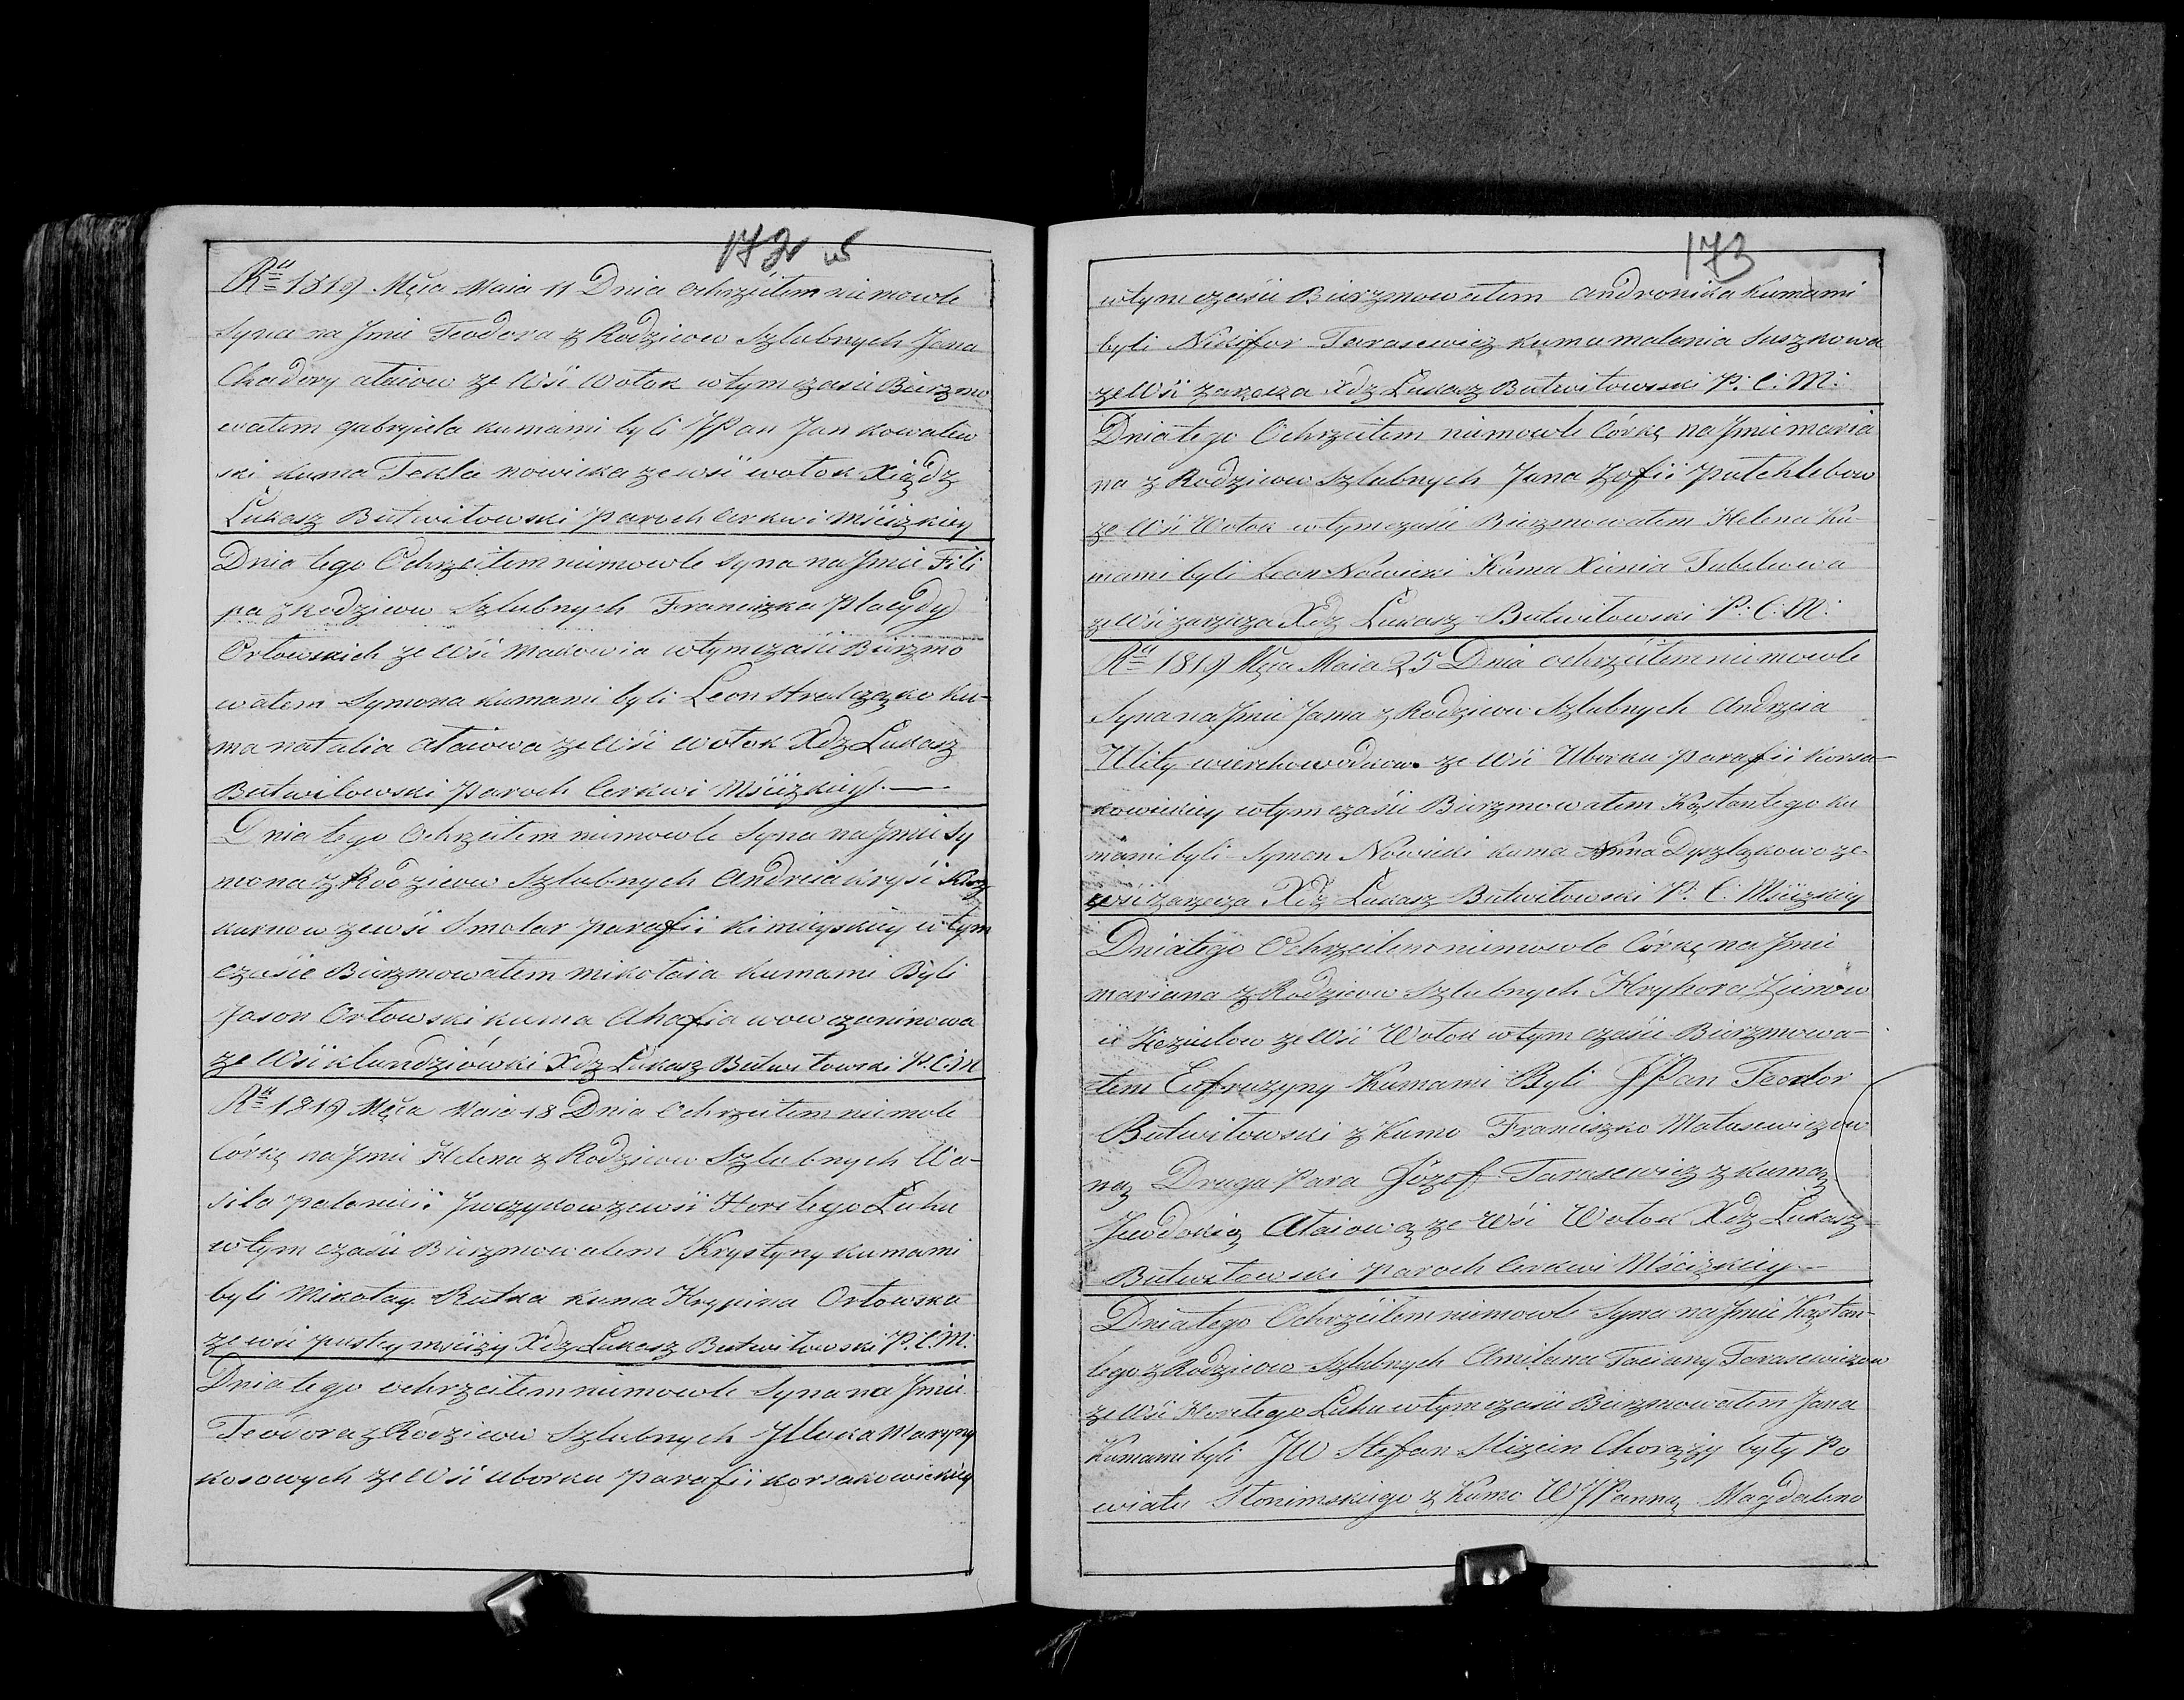 172 v
R= 1819 Mca Maia 11 Dnia Ochrzciłem niemowle
Syna na Jmie Teodora z Rodzicow Szlubnych Jana
Chadory ataiow ze Wśi Wołok wtym czasie Bierzmo
wałem gabryiela kumami byli JPan Jan Kowalew
ski kuma Tekla nowicka ze wśi wołok Xiądz
Łukasz Butwiłowski Paroch Cerkwi Mściżkiey
Dnia tego Ochrzciłem niemowle syna na Jmie Fili
pa z Rodzicow Szlubnych Franciszka Placydy
Orłowskich ze Wśi Makowia wtym czasie Bierzmo
wałem Symona kumami byli Leon Strelczązko Ku-
ma natalia ataiowa ze Wśi Wołok Xdz Łukasz
Butwiłowski Paroch Cerkwi Mściżkiey.—
Dnia tego Ochrzciłem niemowle Syna na Jmie Sy
mona z Rodzicow Szlubnych Andreia kryśi
kurnow ze wśi Smolar parafii Kimieyskiey w tym
czasie Bierzmowałem mikołaia kumami Byli
Jason Orłowski kuma Ahafia wowczaninowa
ze Wśi klundziówki Xdz Łukasz Butwiłowski P. C. M
R= 1819 Mca Maia 18 Dnia Ochrzciłem niemole
Córkę na Jmie Helena z Rodzicow Szlubnych Wa-
sila palanieii Jwczykow ze wśi Horełego Łuhu
wtym czasie Bierzmowałem Krystyny kumami
byli Mikołay Rutka kuma Krypina Orłowska
ze wśi pustey mściży Xdz Łukasz Butwiłowski P. C. M:
Dnia tego ochrzciłem niemowle Syna na Jmie
Teodora z Rodzicow Szlubnych Jlluka Maryny
kosowych ze Wśi uborku Parafii korsakowickiey
173
wtym czasie Bierzmowałem andronika Kumami
byli Nikifor Tarasewicz kuma malania Suszkowa
ze Wśi zarzecza Xdz Łukasz Butwiłowski P: C: M:
Dnia tego Ochrzciłem niemowle Córkę na Jmie maria
na z Rodzicow Szlubnych Jana Zofii Putchlebow
ze Wśi Wołok wtym czasie Bierzmowałem Helena Ku-
mami byli Leon Nowicki Kuma Xienia Tabelowa
ze Wśi zarzecza Xdz Łukasz Butwiłowski P: C: M:
R= 1819 Mca Maia 25 Dnia ochrzciłem niemowle
Syna na Jmie Jana z Rodzicow Szlubnych Andrzeia
Ulity wierchowodkow ze Wśi Uborku Parafii Korsa-
kowickiey wtym czasie Bierzmowałem Kąstantego ku
mami byli Symon Nowicki kuma Anna Dyszlązkowa ze-
wśi zarzecza Xdz Łukasz Butwiłowski P: C: Mściżkiey
Dnia tego Ochrzciłem niemowle Córkę na Jmie
mariana z Rodzicow Szlubnych Hryhora Zienow
ii Koziulow ze Wśi Wołok wtym czasie Bierzmowa-
łem Eufruzyny Kumami Byli JPan Teodor
Butwiłowski z Kumo Franciszko Matusewiczow
ną Druga Para Józef Tarasewicz z kumą
Jewdokią Ataiową ze Wśi Wołok Xdz Łukasz
Butwiłowski Paroch Cerkwi Mściżkiey—
Dnia tego Ochrzciłem niemowle Syna na Jmie Kąstan-
tego z Rodzicow Szlubnych Amilana Taciany Tarasewiczow
ze Wśi Horełego Łuhu wtym czasie Bierzmowałem Jana
Kumami byli JW Stefan Slizien Chorąży były Po
wiatu Słonimskiego z Kumo WJPanną Magdaleno